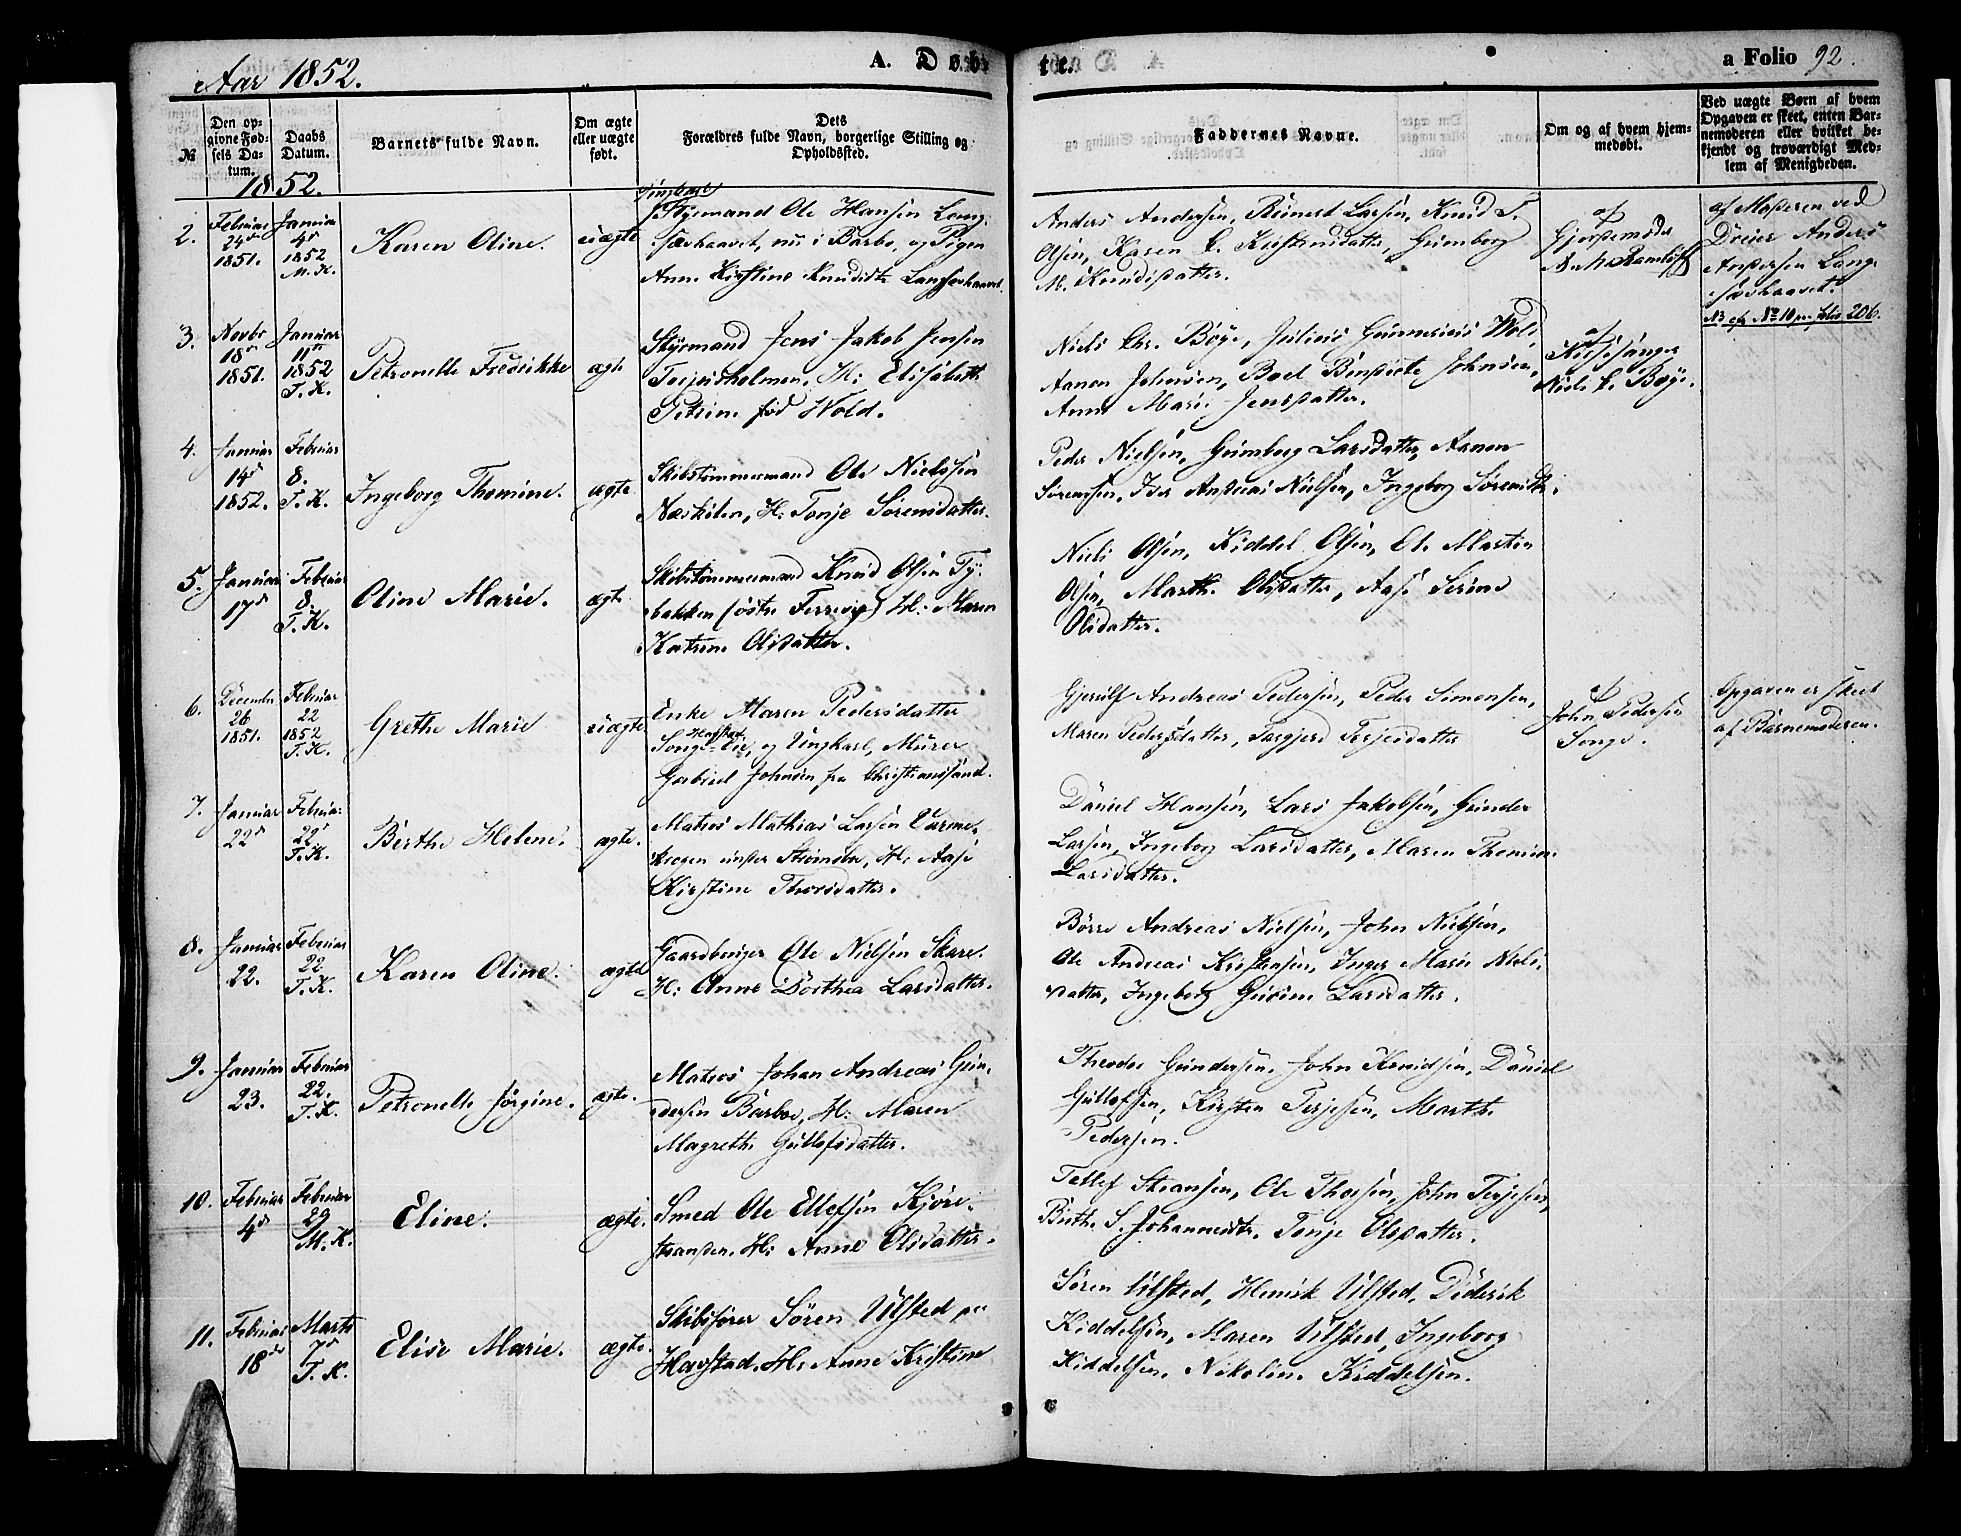 Aar 1852.
A. Døbte.
a Folio 92.
№
Den opgivne Fødsels Datum.
Daabs Datum.
Barnets fulde Navn.
Om ægte eller uægte født.
Dets Forældres fulde Navn, borgerlige Stilling og Opholdssted.
Faddernes Navne.
Om og af hvem hjemmedøbt.
Ved uægte Børn af hvem Opgaven er skeet, enten Barnemoderen eller hvilket bekjendt og troværdigt Medlem af Menigheden.
1852.
2.
24d
1851.
Januar
4d
1852
M. K.
Karen Oline.
uægte
Styrmand Ole Hansen Lang-
sævhaavet, nu i Barbo, og Pigen
Anne Kirstine Knudsdtr Langsævhaavet.
Anders Andersen, Reinert Larsen, Knud T.
Olsen, Karen C. Kirstensdatter, Grimborg
M. Knudsdatter.
af
Gjordemoder
af Moderen ved
Dreier Anders
Andersen Lang-
sævhaavet.
3.
Novbr
18d
1851.
Januar
11te
1852
T. K.
Petronelle Fredrikke
ægte
Styrmand Jens Jakob Jensen
Terjeisholmen, H: Elisabeth
Petrine fød Wold.
Niels Chr. Bøye, Julius Gunnerius Wold,
Aanon Johnsen, Boel Johnsen,
Anne Marie Jensdatter.
af
Kirkesanger
Niels C. Bøye.
4.
Januar
14d
1852.
Februar
8.
T. K.
Ingeborg Thomine.
ægte
Skibstømmermand Ole Nielssen
Næskilen, H: Tonje Sørensdatter.
Peder Nielsen, Grimborg Larsdatter, Aanon
Sørensen, Iver Andreas Nielsen, Ingeborg Sørensdtr.
5.
Januar
17d
Februar
8.
T. K.
Oline Marie.
ægte
Skibstømmermand Knud Olsen Ty-
bakken (østre Terresvig) H: Maren
Katrine Olsdatter.
Niels Olsen, Kiddel Olsen, Ole Martin
Olsen, Marthe Olsdatter, Aase Serine
Olsdatter.
6.
December
26
1851.
Februar
22
1852
T. K.
Grethe Marie
uægte
Enke Maren Pedersdatter
Songe-Eie, og Ungkarl, Murer
Gabriel Johnsen fra Christianssand.
Gjerulf Andreas Pedersen, Peder Simonsen,
Maren Pedersdatter, Torgjerd Terjesdatter
af
John Pedersen
Songe.
Opgaven er skeet
af Barnemoderen.
7.
Januar
22d
Februar
22d
T. K.
Birthe Helene.
ægte.
Matros Mathias Larsen Varme-
krogen under Strømsbo, H: Aase
Kirstine Thorsdatter.
Daniel Hansen, Lars Jakobsen, Gunder
Larsen, Ingeborg Larsdatter, Maren Thomine
Larsdatter.
8.
Januar
22.
Februar
22
T. K.
Karen Oline.
ægte
Gaardbruger Ole Nielsen Skare.
H: Anne Dorthea Larsdatter.
Børre Andreas Nielsen, John Nielsen,
Ole Andreas Kristensen, Inger Marie Niels-
datter, Ingeborg Gurine Larsdatter.
9.
Januar
23.
Februar
22.
T. K.
Petronelle Jørgine.
ægte.
Matros Johan Andreas Gun-
dersen Barbo, H: Maren
Magrethe Gullofsdatter.
Theodor Gundersen, John Knudsen, Daniel
Gullofsen, Kirsten Terjesen, Marthe
Pedersen.
10.
Februar
4d
Februar
29
M. K.
Eline.
ægte.
Smed Ole Ellefsen Kjøre-
stranden, H: Anne Olsdatter.
Tellef Steansen, Ole Thorsen, John Terjesen,
Birthe S. Johannesdtr, Tonje Olsdatter.
11.
Februar
18de
Marts
7d
T. K.
Elise Marie.
ægte.
Skibsfører Søren Ulsted paa
Havstad, H: Anne Kristine
Søren Ulsted, Henrik Ulsted, Diderik
Kiddelsen, Maren Ulsted, Ingeborg
Kiddelsen, Nikoline Kiddelsen.